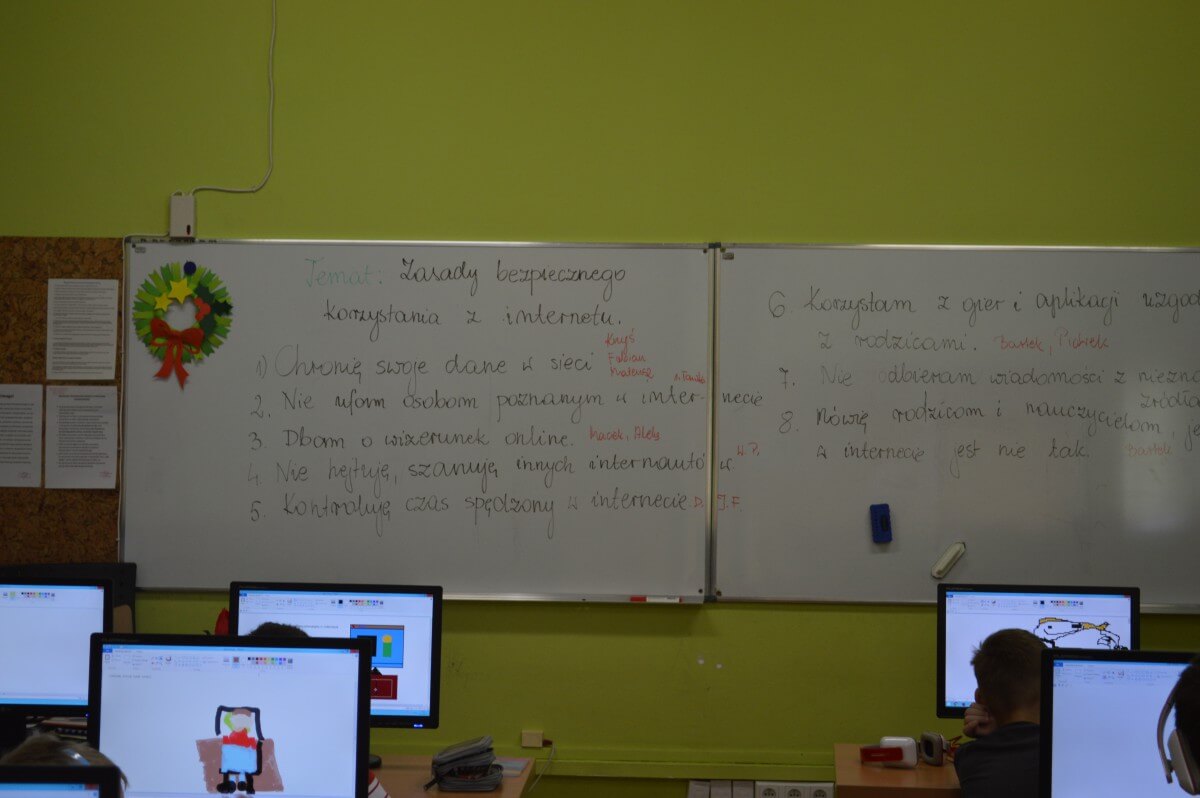 Temat: Zasady bezpiecznego
korzystania z internetu.
1) Chronię swoje dane w sieci Krzyś
Fabian
Mateusz
2. Nie ufam osobom poznanym w internecie
3. Dbam o wizerunek online. Maciek,
4. Nie hejtuję, szanuję innych internautów. W.P.
5. Kontroluję czas spędzony w internecie. D. J.F.
6. Korzystam z gier i aplikacji uzgod
z rodzicami. Bartek, Piotrek
7. Nie odbieram wiadomości z niezna
źródła
8. Mówię rodzicom i nauczycielom, je
w internecie jest nie tak. Bartek